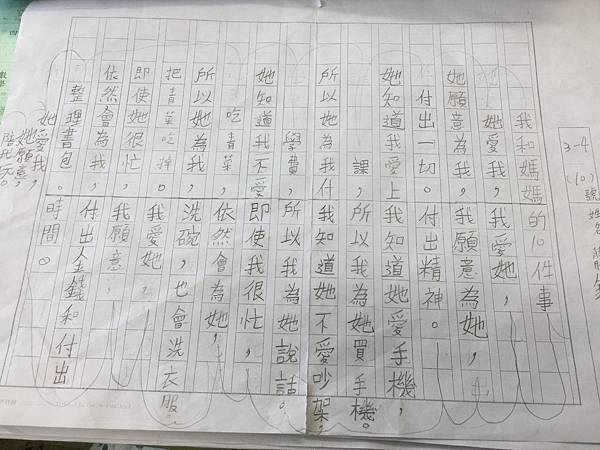 3-4
(10)號
姓名
我和媽媽的10件事
她愛我,
她願意為我,
付出一切。
她知道我愛上
課,
所以她為我付
學費,
她知道我不愛
吃青菜,
所以她為我,
把青菜吃掉。
即使她很忙,
依然會為我,
整理書包。
她愛我,
她願意,
陪我玩。
我愛她,
我願意為她,
付出精神。
我知道她愛手機,
所以我為她買手機。
我知道她不愛吵架,
所以我為她說話。
即使我很忙,
依然會為她,
洗碗,也會洗衣服。
我愛她,
我願意,
付出金錢和付出
時間。